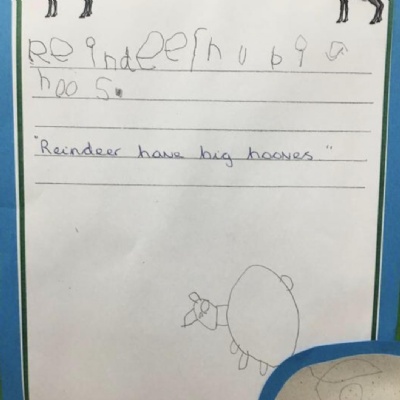 Reindeer hu big
hoos.
"Reindeer have big hooves."